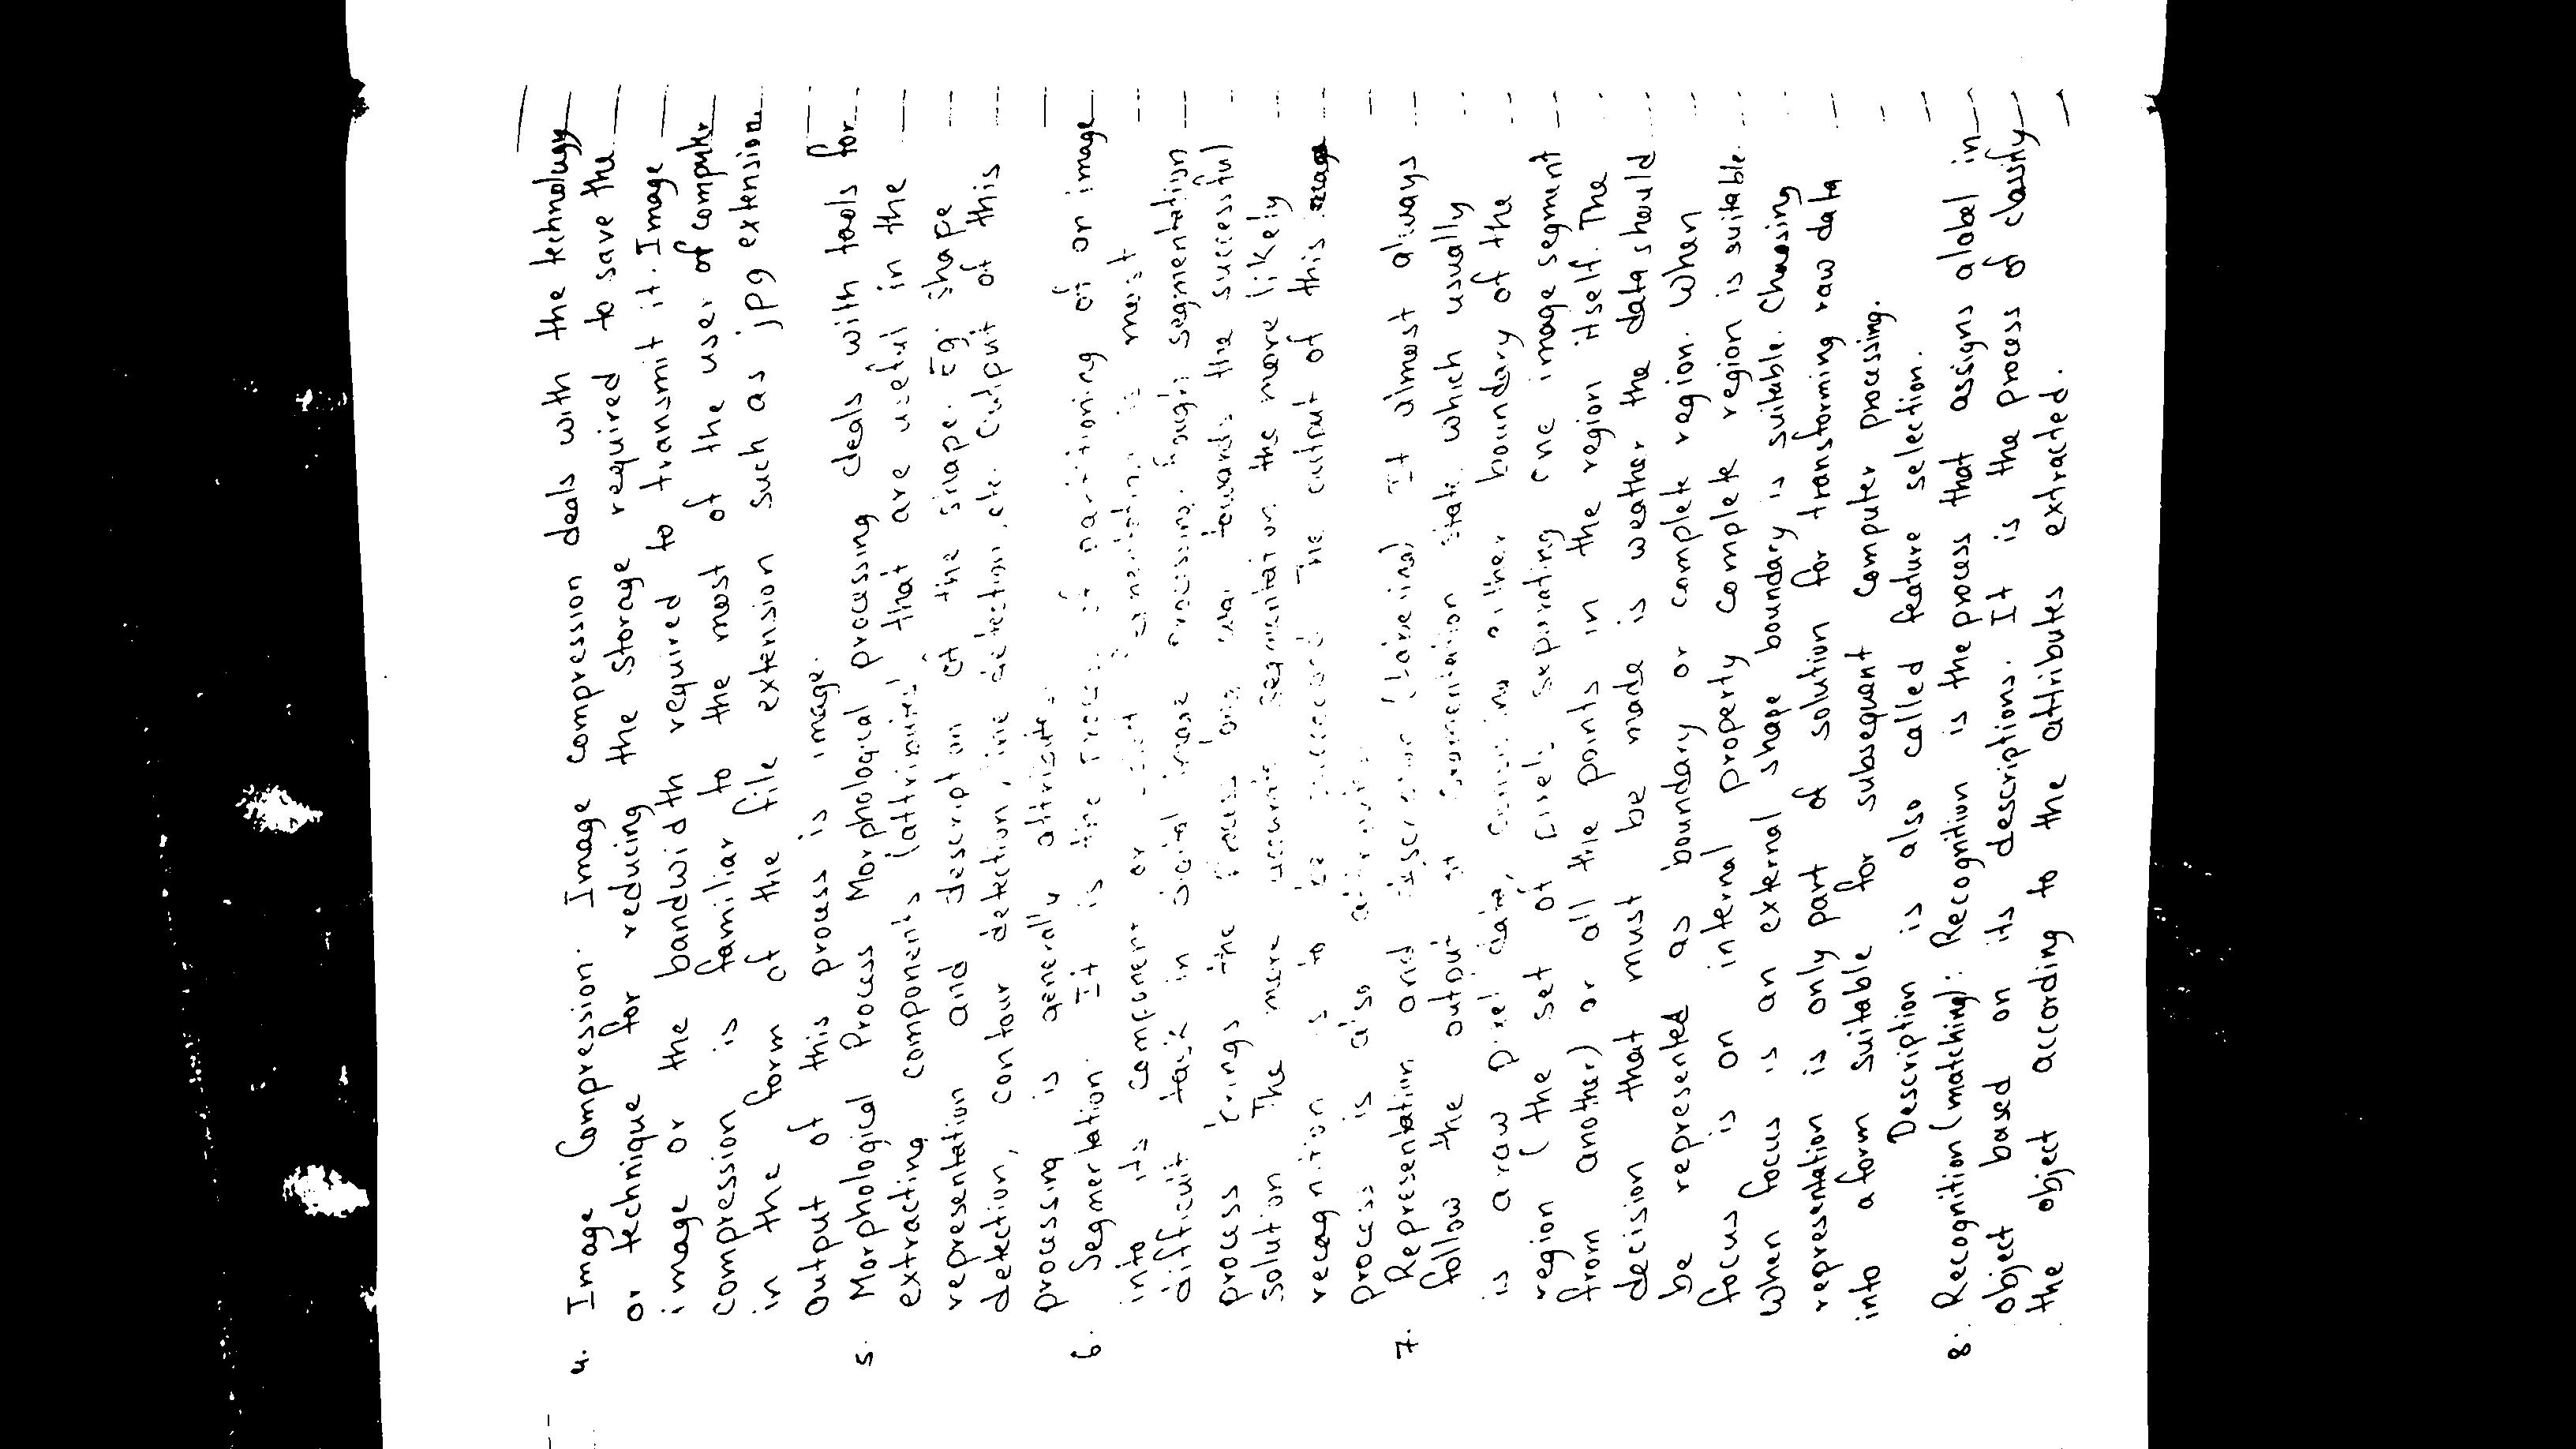 4. Image Compression. Image compression deals with the technology
or technique for reducing the storage required to save the
image or the bandwidth required to transmit it. Image
compression is familiar to the most of the user of computer
in the form of the file extension such as jpg extension
Output of this process is image.
5. Morphological Process Morphological processing deals with tools for
extracting components (attributes) that are useful in the
representation and description of the shape. Eg. shape
detection, contour detection, line detection, etc. Output of this
processing is generally attribute.
6. Segmentation. It is the process of partitioning of an image
into its component or is most
difficult task in digital image processing. segmentation
process brings the process long way towards the successful
solution The more accurate segmentation the more likely
recognition is to be The output of this
process is also
7. Representation and (Labeling) It almost always
follow the output of segmentation state which usually
is a raw pixel data, either boundary of the
region (the set of pixels separating one image segment
from another) or all the points in the region itself. The
decision that must be made is weather the data should
be represented as boundary or complete region. When
focus is on internal property complete region is suitable.
When focus is an external shape boundary is suitable. Choosing
representation is only part of solution for transforming raw data
into a form suitable for subsequent computer processing.
Description is also called feature selection.
8. Recognition (matching): Recognition is the process that assigns a label in
object based on its descriptions. It is the process of classify
the object according to the attributes extracted.